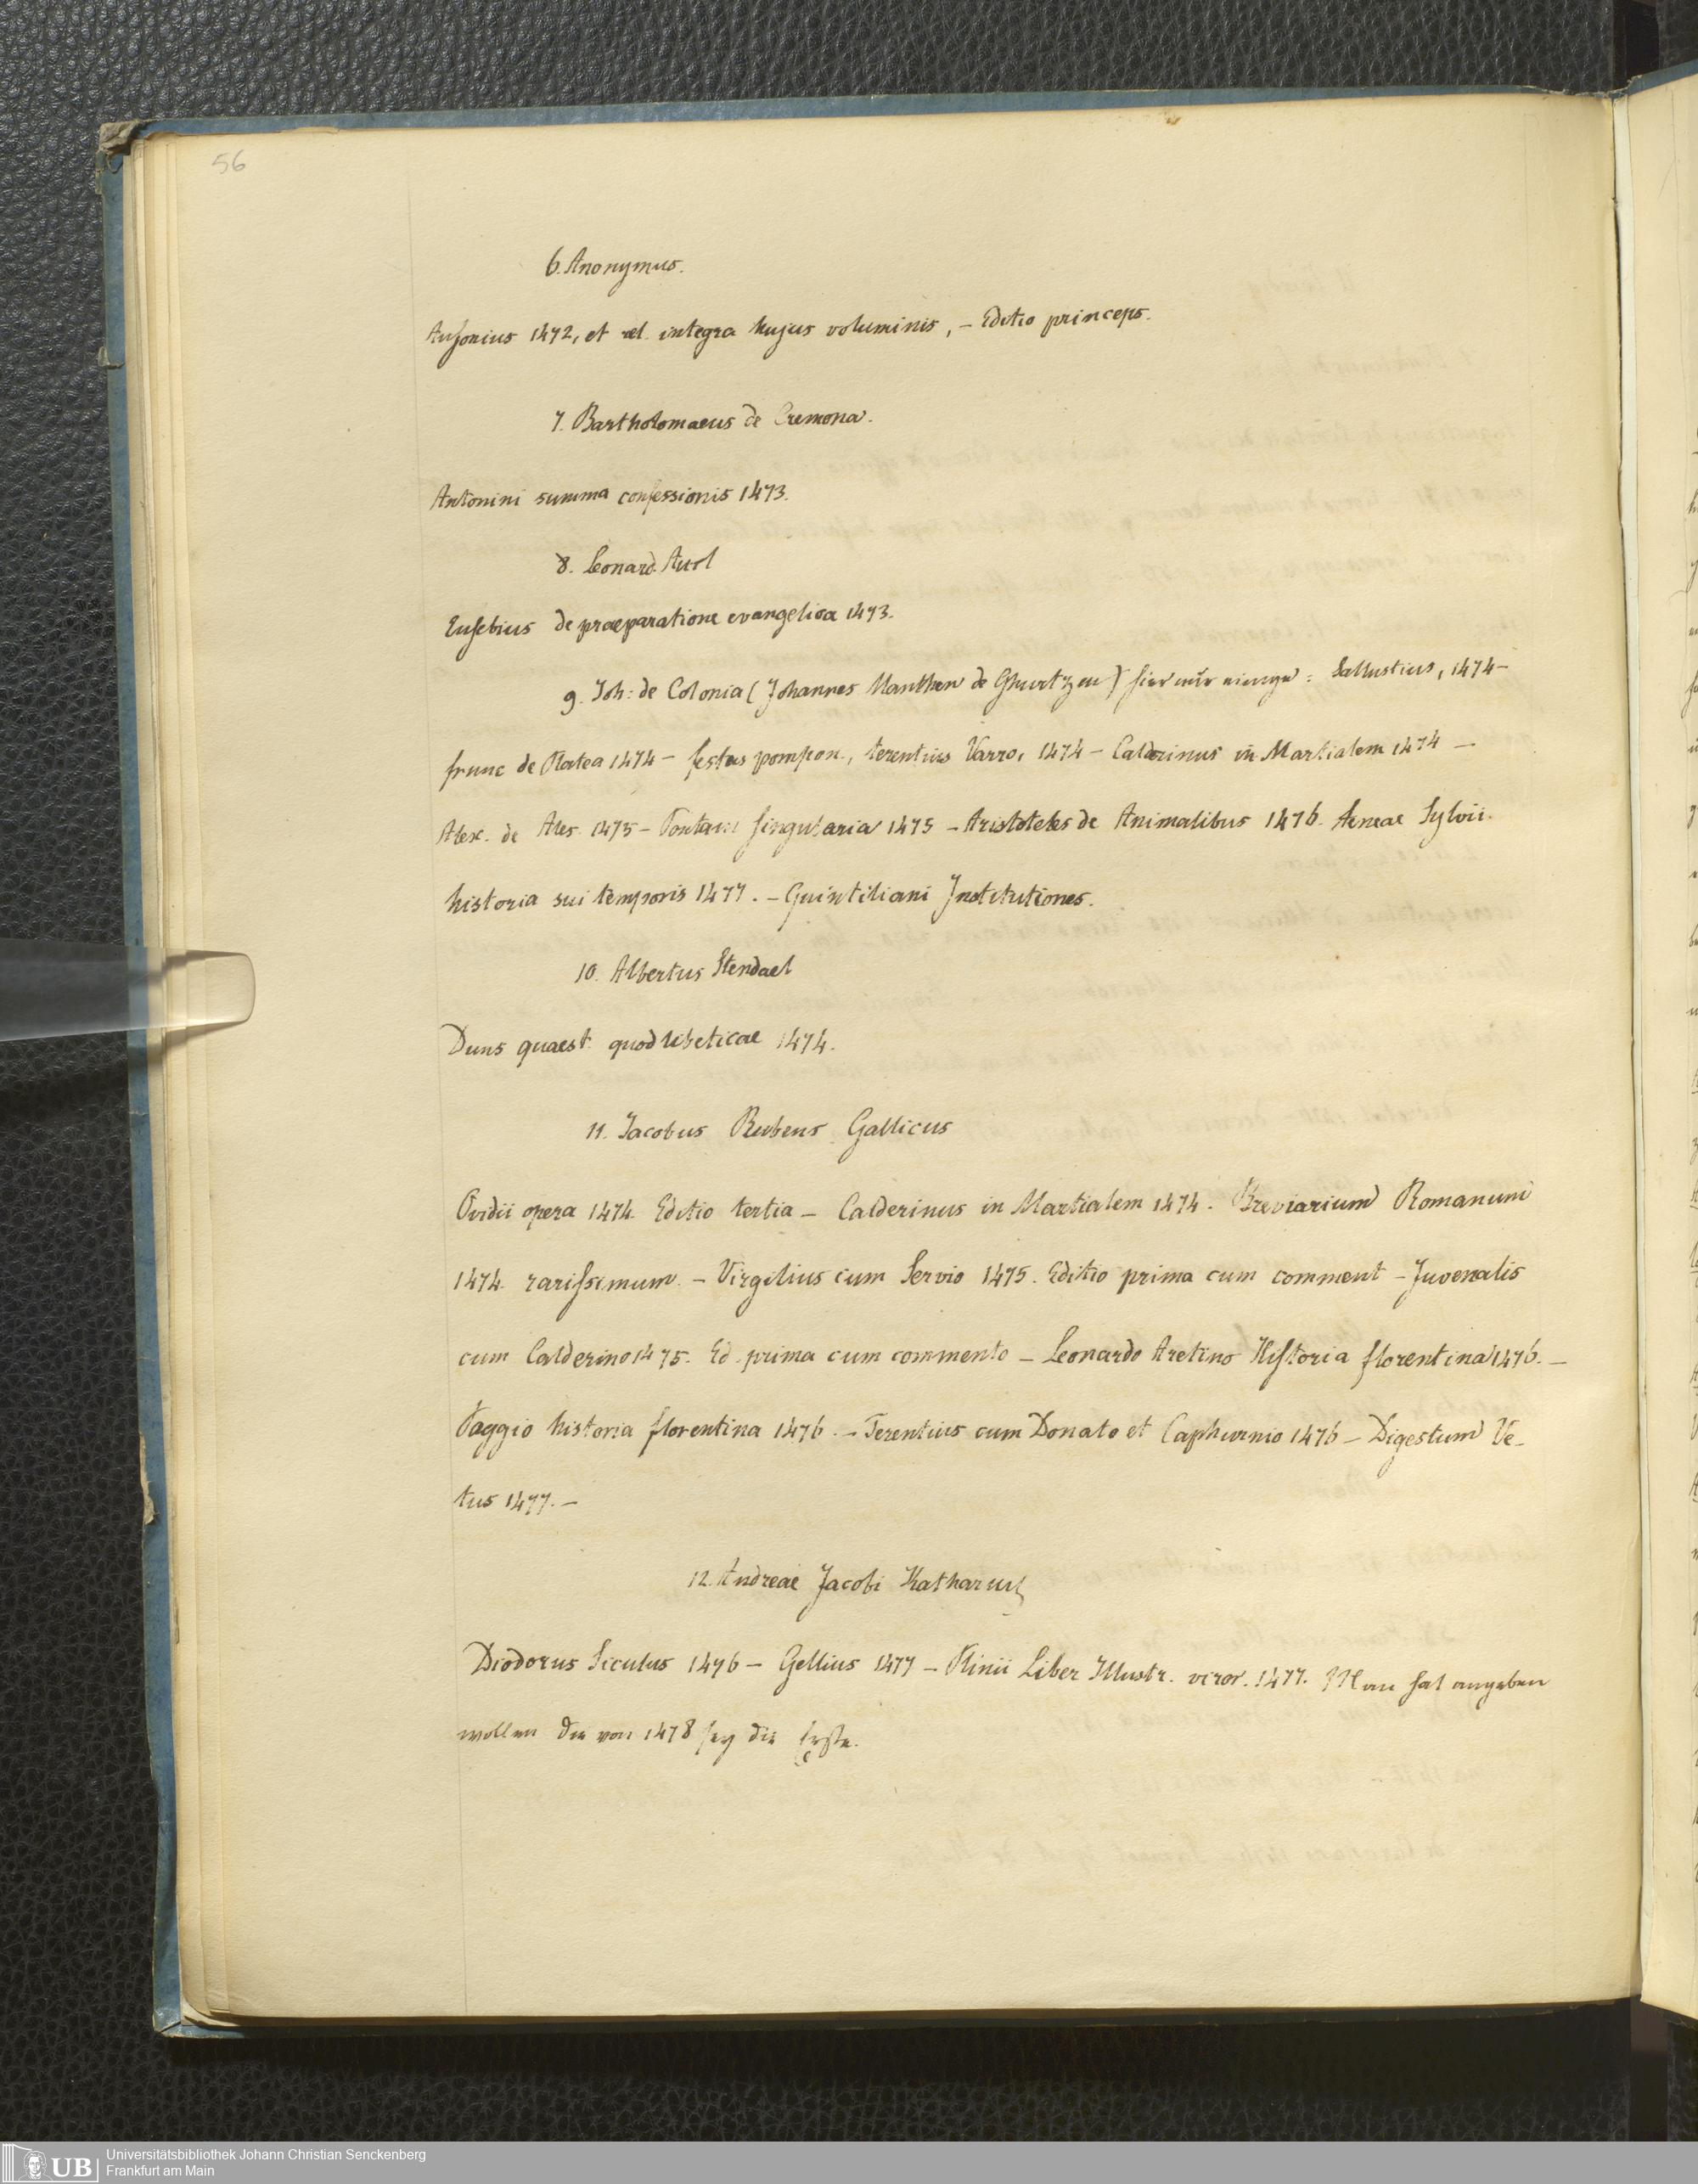 56
6. Anonymus.
Ausonius 1472, et ael. integra hujus voluminis, – Editio princeps.
7. Bartholomaeus de Cremona.
Antonini summa confessionis 1473.
8. Leonard. Aurl
Eusebius de praeparatione evangelica 1473.
9. Joh: de Colonia (Johannes Manthen de Gherrtzen) hier nur einige: Sallustius, 1474 –
franc de Platea 1474 – festus pompon., terentius Varro, 1474 – Calderinus in Martialem 1474 –
Alex. de Ales 1475 – Pontani singularia 1475 – Aristoteles de Animalibus 1476. Aeneae Sylvii.
historia sui temporis 1477. – Quintiliani Institutiones.
10. Albertus Stendael
Duns quaest. quodlibeticae 1474.
11. Jacobus Rubens Gallicus
Ovidii opera 1474. Editio tertia – Calderinus in Martialem 1474. Breviarium Romanum
1474. rarissimum. – Virgilius cum Servio 1475. Editio prima cum comment – Juvenalis
cum Calderino 1475. Ed. prima cum commento – Leonardo Aretino Historia florentina 1476. –
Poggio historia florentina 1476. – Terentius cum Donato et Caphurnio 1476 – Digestum Ve-
tus 1477. –
12. Andreae Jacobi Katharus
Diodorus Siculus 1476 – Gellius 1477 – Plinii Liber Illustr. viror. 1477. Man hat angeben
wollen die von 1478 sey die Erste.
UB
Universitätsbibliothek Johann Christian Senckenberg
Frankfurt am Main